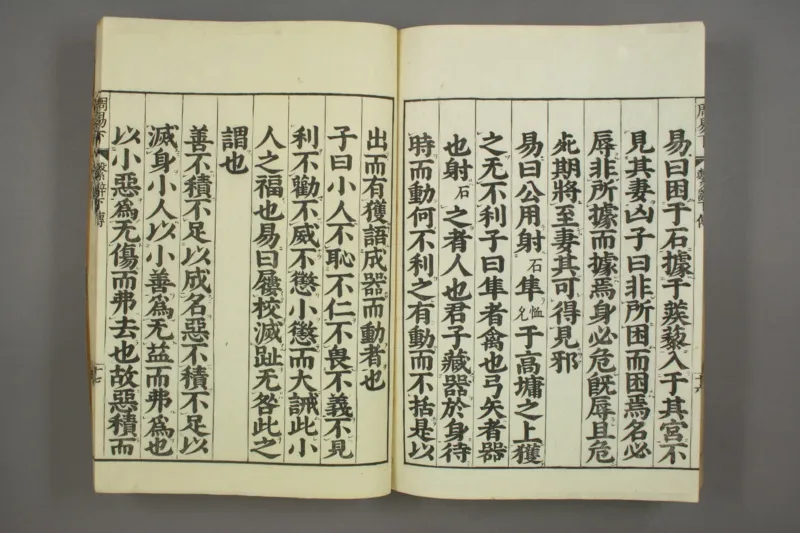 易曰困于石據于蒺藜入于其宮不
見其妻凶子曰非所困而困焉名必
辱非所據而據焉身必危既辱且危
死期將至妻其可得見邪
易曰公用射石隼恤允于高墉之上獲
之无不利子曰隼者禽也弓矢者器
也射石之者人也君子藏器於身待
時而動何不利之有動而不括是以
出而有獲語成器而動者也
子曰小人不恥不仁不畏不義不見
利不勸不威不懲小懲而大誡此小
人之福也易曰屨校滅趾无咎此之
謂也
善不積不足以成名惡不積不足以
滅身小人以小善為无益而弗為也
以小惡為无傷而弗去也故惡積而
周易下 繫辭下傳 十六
周易下 繫辭下傳 十七